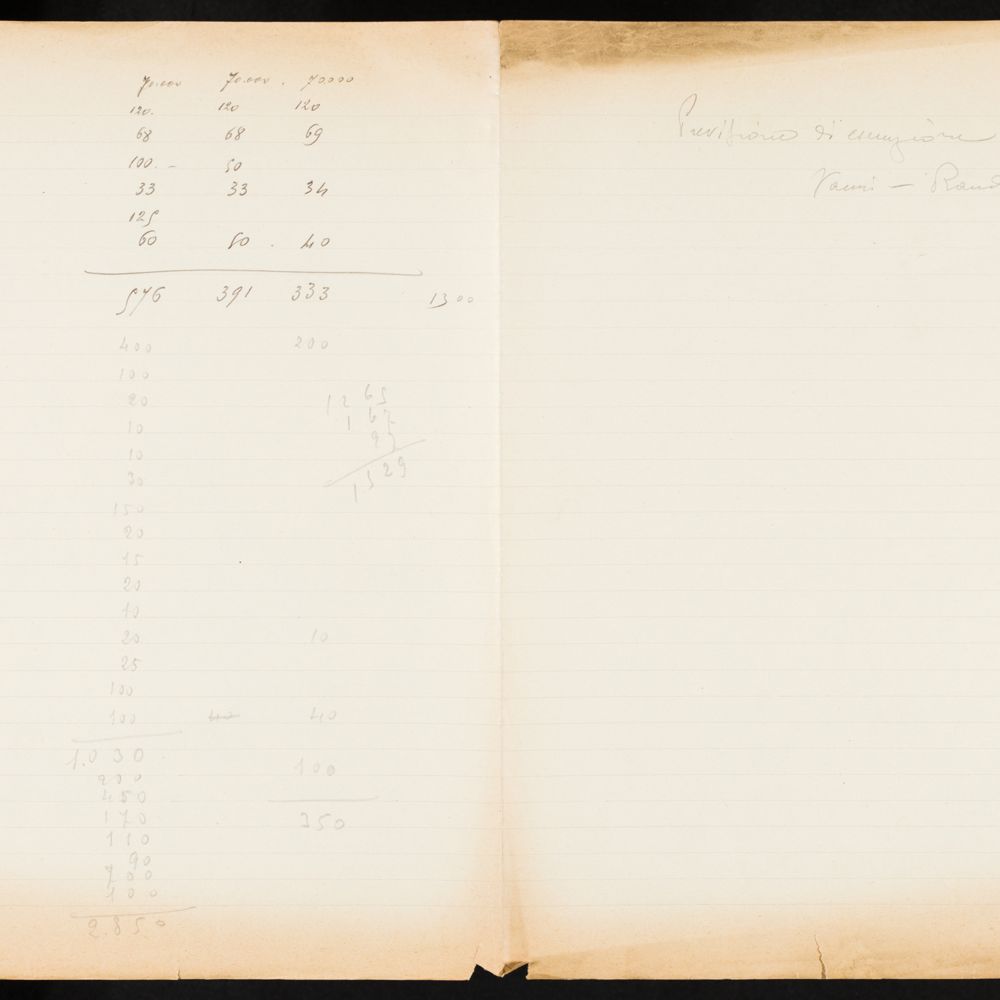 70.000 70.000 . 70000
120. 120 120
68 68 69
100. - 50
33 33 34
125
60 50 . 40
576 391 333 1300
400 200
100
20
10
10
30
150
20
15
20
10
20 10
25
100
100 40 40
1.030
200
450
170
110
90
700
100
2.850
100
350
1265
167
97
1529
di
Vanni —